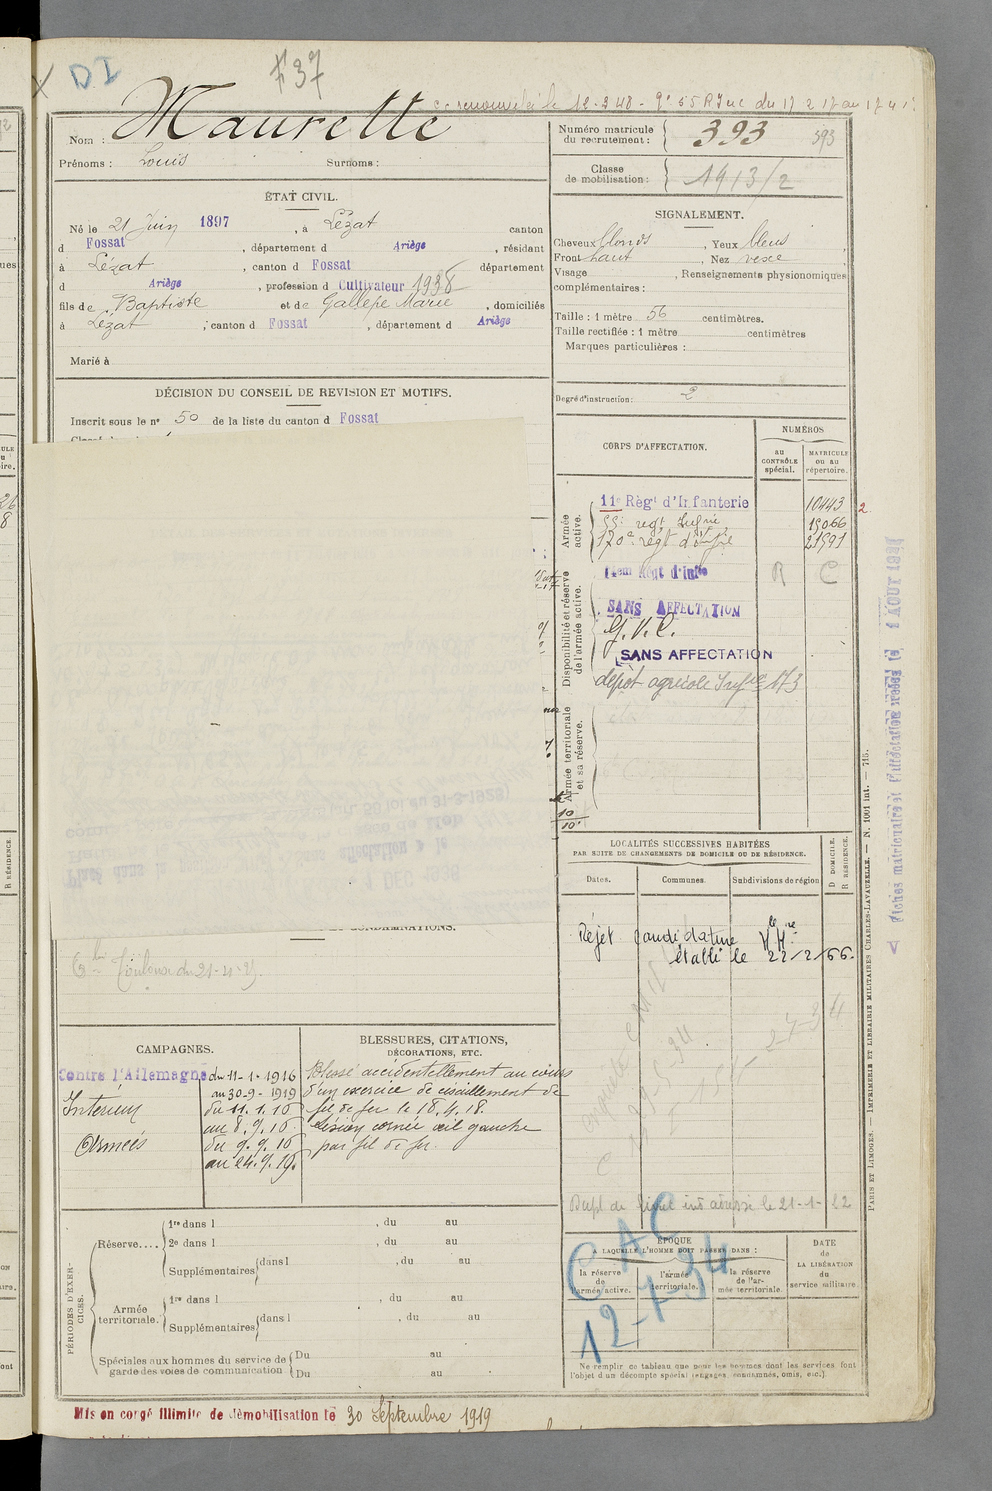 DI
F 37
cc renouvelé le 12-2-48 - 9' 55 R Inf du 17 2 17 au 17 4 1
Nom : Maurette
Prénoms : Louis Surnoms :
Numéro matricule du recrutement : 393 393
Classe de mobilisation : 1913/2
ÉTAT CIVIL.
Né le 21 Juin 1897, à Lézat canton
d Fossat, département d Ariège, résidant
à Lézat, canton d Fossat département
d Ariège, profession d Cultivateur 1938
fils de Baptiste et de Gallepe Marie, domiciliés
à Lézat, canton d Fossat, département d Ariège
Marié à
SIGNALEMENT.
Cheveux blonds, Yeux bleus
Front haut, Nez vexe
Visage , Renseignements physionomiques
complémentaires :
Taille : 1 mètre 56 centimètres.
Taille rectifiée : 1 mètre centimètres
Marques particulières :
Degré d'instruction : 2
DÉCISION DU CONSEIL DE REVISION ET MOTIFS.
Inscrit sous le n° 50 de la liste du canton d Fossat
CORPS D'AFFECTATION.
NUMÉROS
au CONTRÔLE spécial.
MATRICULE ou au répertoire.
Armée active.
11e Régt d'Infanterie 10443 2
55e regt Infrie 15066
170e regt d'infie 21591
Disponibilité et réserve de l'armée active.
11em Régt d'Inffie R C
SANS AFFECTATION
G.V.C.
SANS AFFECTATION
dépôt agricole Infie 173
Armée territoriale et sa réserve.
Fiches matriculaire et d'affectation créées le 1 AOUT 1931
LOCALITÉS SUCCESSIVES HABITÉES
PAR SUITE DE CHANGEMENTS DE DOMICILE OU DE RÉSIDENCE.
D DOMICILE.
R RÉSIDENCE.
Dates. Communes. Subdivisions de région
Rejet candidature
établi le 22/2/66.
Dupl de livret ind adressé le 21-1-22
CAC
12-7-34
Cel Toulouse du 21-11-25.
CAMPAGNES.
Contre l'Allemagne du 11-1-1916
au 30-9-1919
Intérieur du 11.1.16
au 8.9.16
Armées du 9.9.16
au 24.9.19.
BLESSURES, CITATIONS,
DÉCORATIONS, ETC.
Blessé accidentellement au cours
d'un exercice de cisaillement de
fil de fer le 18.4.18.
Lésion cornée œil gauche
par fil de fer
PÉRIODES D'EXERCICES.
Réserve.... 1re dans l , du au
2e dans l , du au
Supplémentaires dans l , du au
Armée territoriale. 1re dans l , du au
Supplémentaires dans l , du au
Spéciales aux hommes du service de garde des voies de communication Du au
Du au
ÉPOQUE
A LAQUELLE L'HOMME DOIT PASSER DANS :
la réserve de l'armée active.
l'armée territoriale.
la réserve de l'armée territoriale.
DATE de LA LIBÉRATION du service militaire.
Ne remplir ce tableau que pour les hommes dont les services font
l'objet d'un décompte spécial (engagés, condamnés, omis, etc.)
PARIS ET LIMOGES. — IMPRIMERIE ET LIBRAIRIE MILITAIRES CHARLES-LAVAUZELLE. — N. 1001 int. — 715.
Mis en congé illimité de démobilisation le 30 Septembre 1919